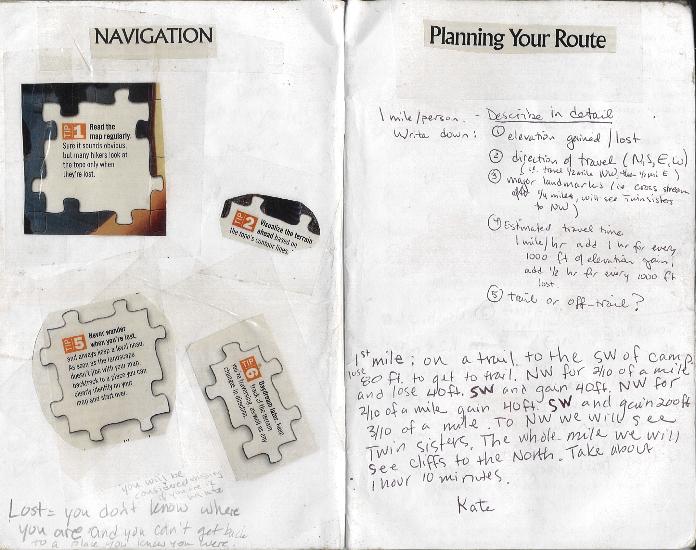 NAVIGATION
TIP 1 Read the
map regularly.
Sure it sounds obvious,
but many hikers look at
the topo only when
they're lost.
TIP 2 Visualize the terrain
ahead based on
the topo's contour lines.
TIP 5 Never wander
when you're lost,
and always keep a level head.
As soon as the landscape
doesn't jive with your map,
backtrack to a place you can
clearly identify on your
map and start over.
TIP 6
track of the terrain
you're traversing as well as any
changes in direction.
you will be
considered missing
if you're
Lost = you don't know where
you are and you can't get back
to a place you knew you were.
Planning Your Route
1 mile/person. - Describe in detail
Write down: ① elevation gained/lost
② direction of travel (N,S,E,W)
(i.e. travel 1/2 mile NW, then 1/4 mi E)
③ major landmarks (ie cross stream
after 1/4 miles, will see Twin sisters
to NW)
④ Estimated travel time
1 mile/hr add 1 hr for every
1000 ft of elevation gain,
add 1/2 hr for every 1000 ft
lost.
⑤ trail or off-trail?
1st mile: on a trail to the SW of camp
lose 80 ft. to get to trail. NW for 2/10 of a mile
and lose 40ft. SW and gain 40ft. NW for
2/10 of a mile gain 40ft. SW and gain 200ft
3/10 of a mile. To NW we will see
Twin sisters. The whole mile we will
see cliffs to the North. Take about
1 hour 10 minutes.
Kate